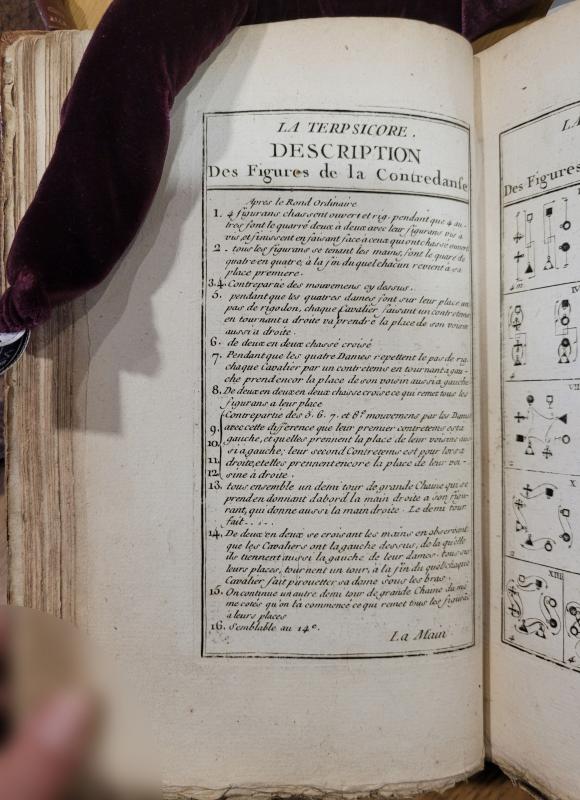 LA TERPSICORE.
DESCRIPTION
Des Figures de la Contredanse
Après le Rond Ordinaire
1. 4 figurans chassent ouvert et rig. pendant que 4 au-
tres font le quarré deux a deux avec leur figurans vis a
vis, et finissent en faisant face a ceux qui ont chassé ouvert
2. tous les figurans se tenant les mains, font le quaré de
quatre en quatre, à la fin du quel chacun revient a sa
place premiere.
3.4. Contrepartie des mouvemens cy dessus.
5. pendant que les quatres dames font sur leur place un
pas de rigodon, chaque Cavalier faisant un contretems
en tournant a droite va prendre la place de son voisin
aussi a droite.
6. de deux en deux chassé croisé
7. Pendant que les quatre Dames repettent le pas de rig.
chaque Cavalier par un contretems en tournant a gau-
che prend encor la place de son voisin aussi a gauche
8. De deux en deux en deux chasse croise ce qui remet tous les
figurans a leur place
Contrepartie des 5. 6. 7. et 8e mouvemens par les Dames
9. avec cette difference que leur premier contretems est a
10. gauche, et qu'elles prennent la place de leur voisine aus-
si a gauche; leur second Contretems est pour lors a
11. droite, et elles prennent encore la place de leur voi-
12. sine à droite.
13. tous ensemble un demi tour de grande Chaine qui se
prend en donnant d'abord la main droite a son figu-
rant, qui donne aussi la main droite. Le demi tour
fait....
14. De deux en deux se croisant les mains en observant
que les Cavaliers ont la gauche dessus, de la quelle
ils tiennent aussi la gauche de leur dames. tous sur
leurs places, tournent un tour, à la fin du quel chaque
Cavalier fait pirouetter sa dame sous les bras.
15. On continue un autre demi tour de grande Chaine du mê-
me cotés qu'on la commence ce qui remet tous les figurans
à leurs places
16. Semblable au 14e.
La Main
LA
Des Figures
IV
VII
X
XIII